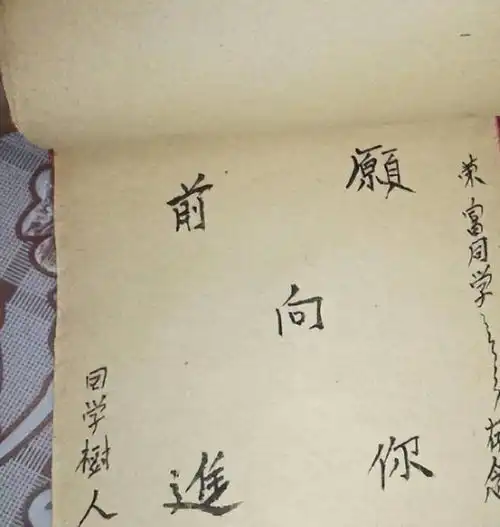 荣富同学存念
願你
向
前進
同学樹人